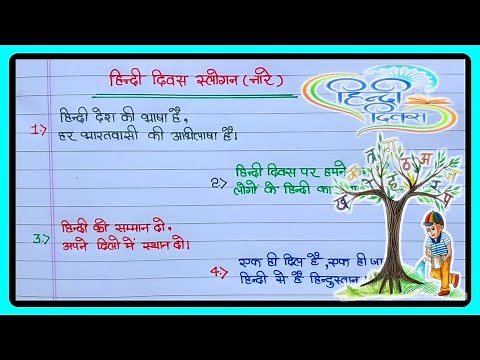 हिन्दी दिवस स्लोगन (नारे)
हिन्दी दिवस
1:> हिन्दी देश की भाषा है,
हर भारतवासी की अभीलाषा है।
2:> हिन्दी दिवस पर हमने
लोगों के हिन्दी का
3:> हिन्दी को सम्मान दो,
अपने दिलो में स्थान दो।
4:> एक ही दिल है, एक ही जा
हिन्दी से है हिन्दुस्तान
ग
अ
ख